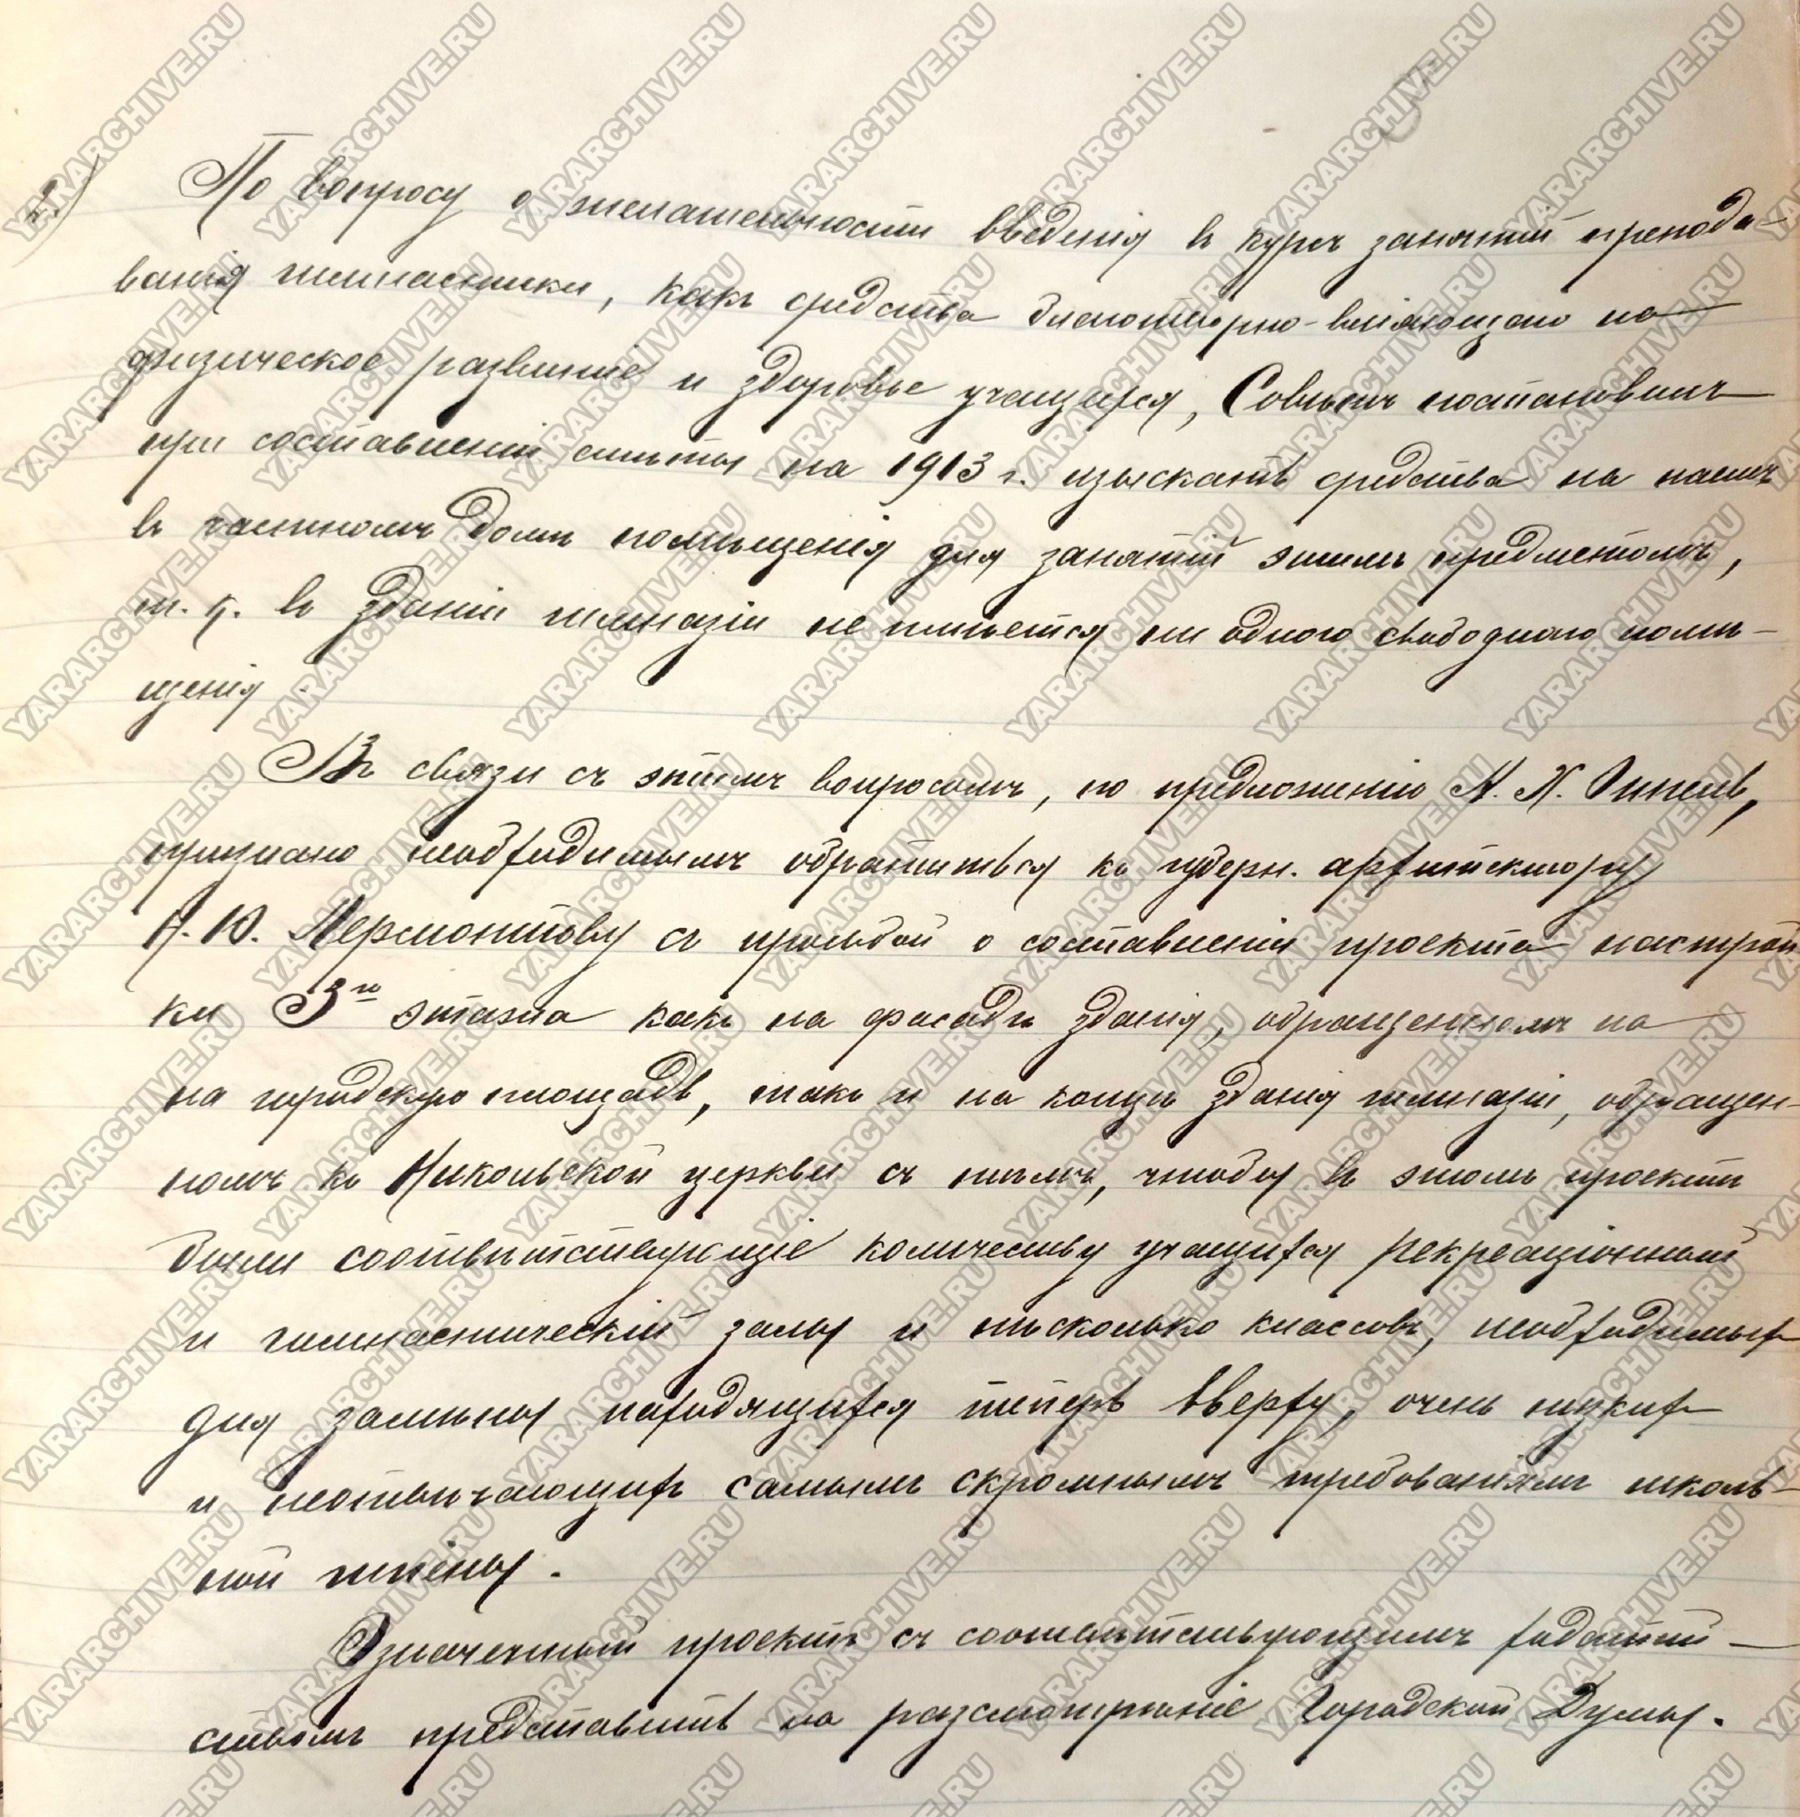 2) По вопросу о желательности введенія въ курсъ занятій препода-
ванія гимнастики, какъ средства благотворно-вліяющаго на
физическое развитіе и здоровье учащихся, Совѣтъ постановилъ
при составленіи смѣты на 1913 г. изыскать средства на наемъ
въ частномъ домѣ помѣщенія для занятій этимъ предметомъ,
т. к. въ зданіи гимназіи не имѣется ни одного свободнаго помѣ-
щенія.
Въ связи съ этимъ вопросомъ, по предложенію А. Х.
признано необходимымъ обратиться къ губерн. архитектору
А. Ю. Лермонтову съ просьбой о составленіи проекта настрой
ки 3го этажа какъ на фасадѣ зданія, обращенномъ на
на городскую площадь, такъ и на концѣ зданія гимназіи, обращен-
номъ къ Никольской церкви съ тѣмъ, чтобы въ этомъ проектѣ
были соотвѣтствующіе количеству учащихся рекреаціонный
и гимнастическій залы и нѣсколько классовъ, необходимыхъ
для замѣны находящихся теперь вверху, очень низкихъ
и неотвѣчающихъ самымъ скромнымъ требованіямъ школь-
ной гигіены.
Означенный проектъ съ соотвѣтствующимъ ходатай-
ствомъ представить на разсмотрѣніе Городской Думы.
YARARCHIVE.RU